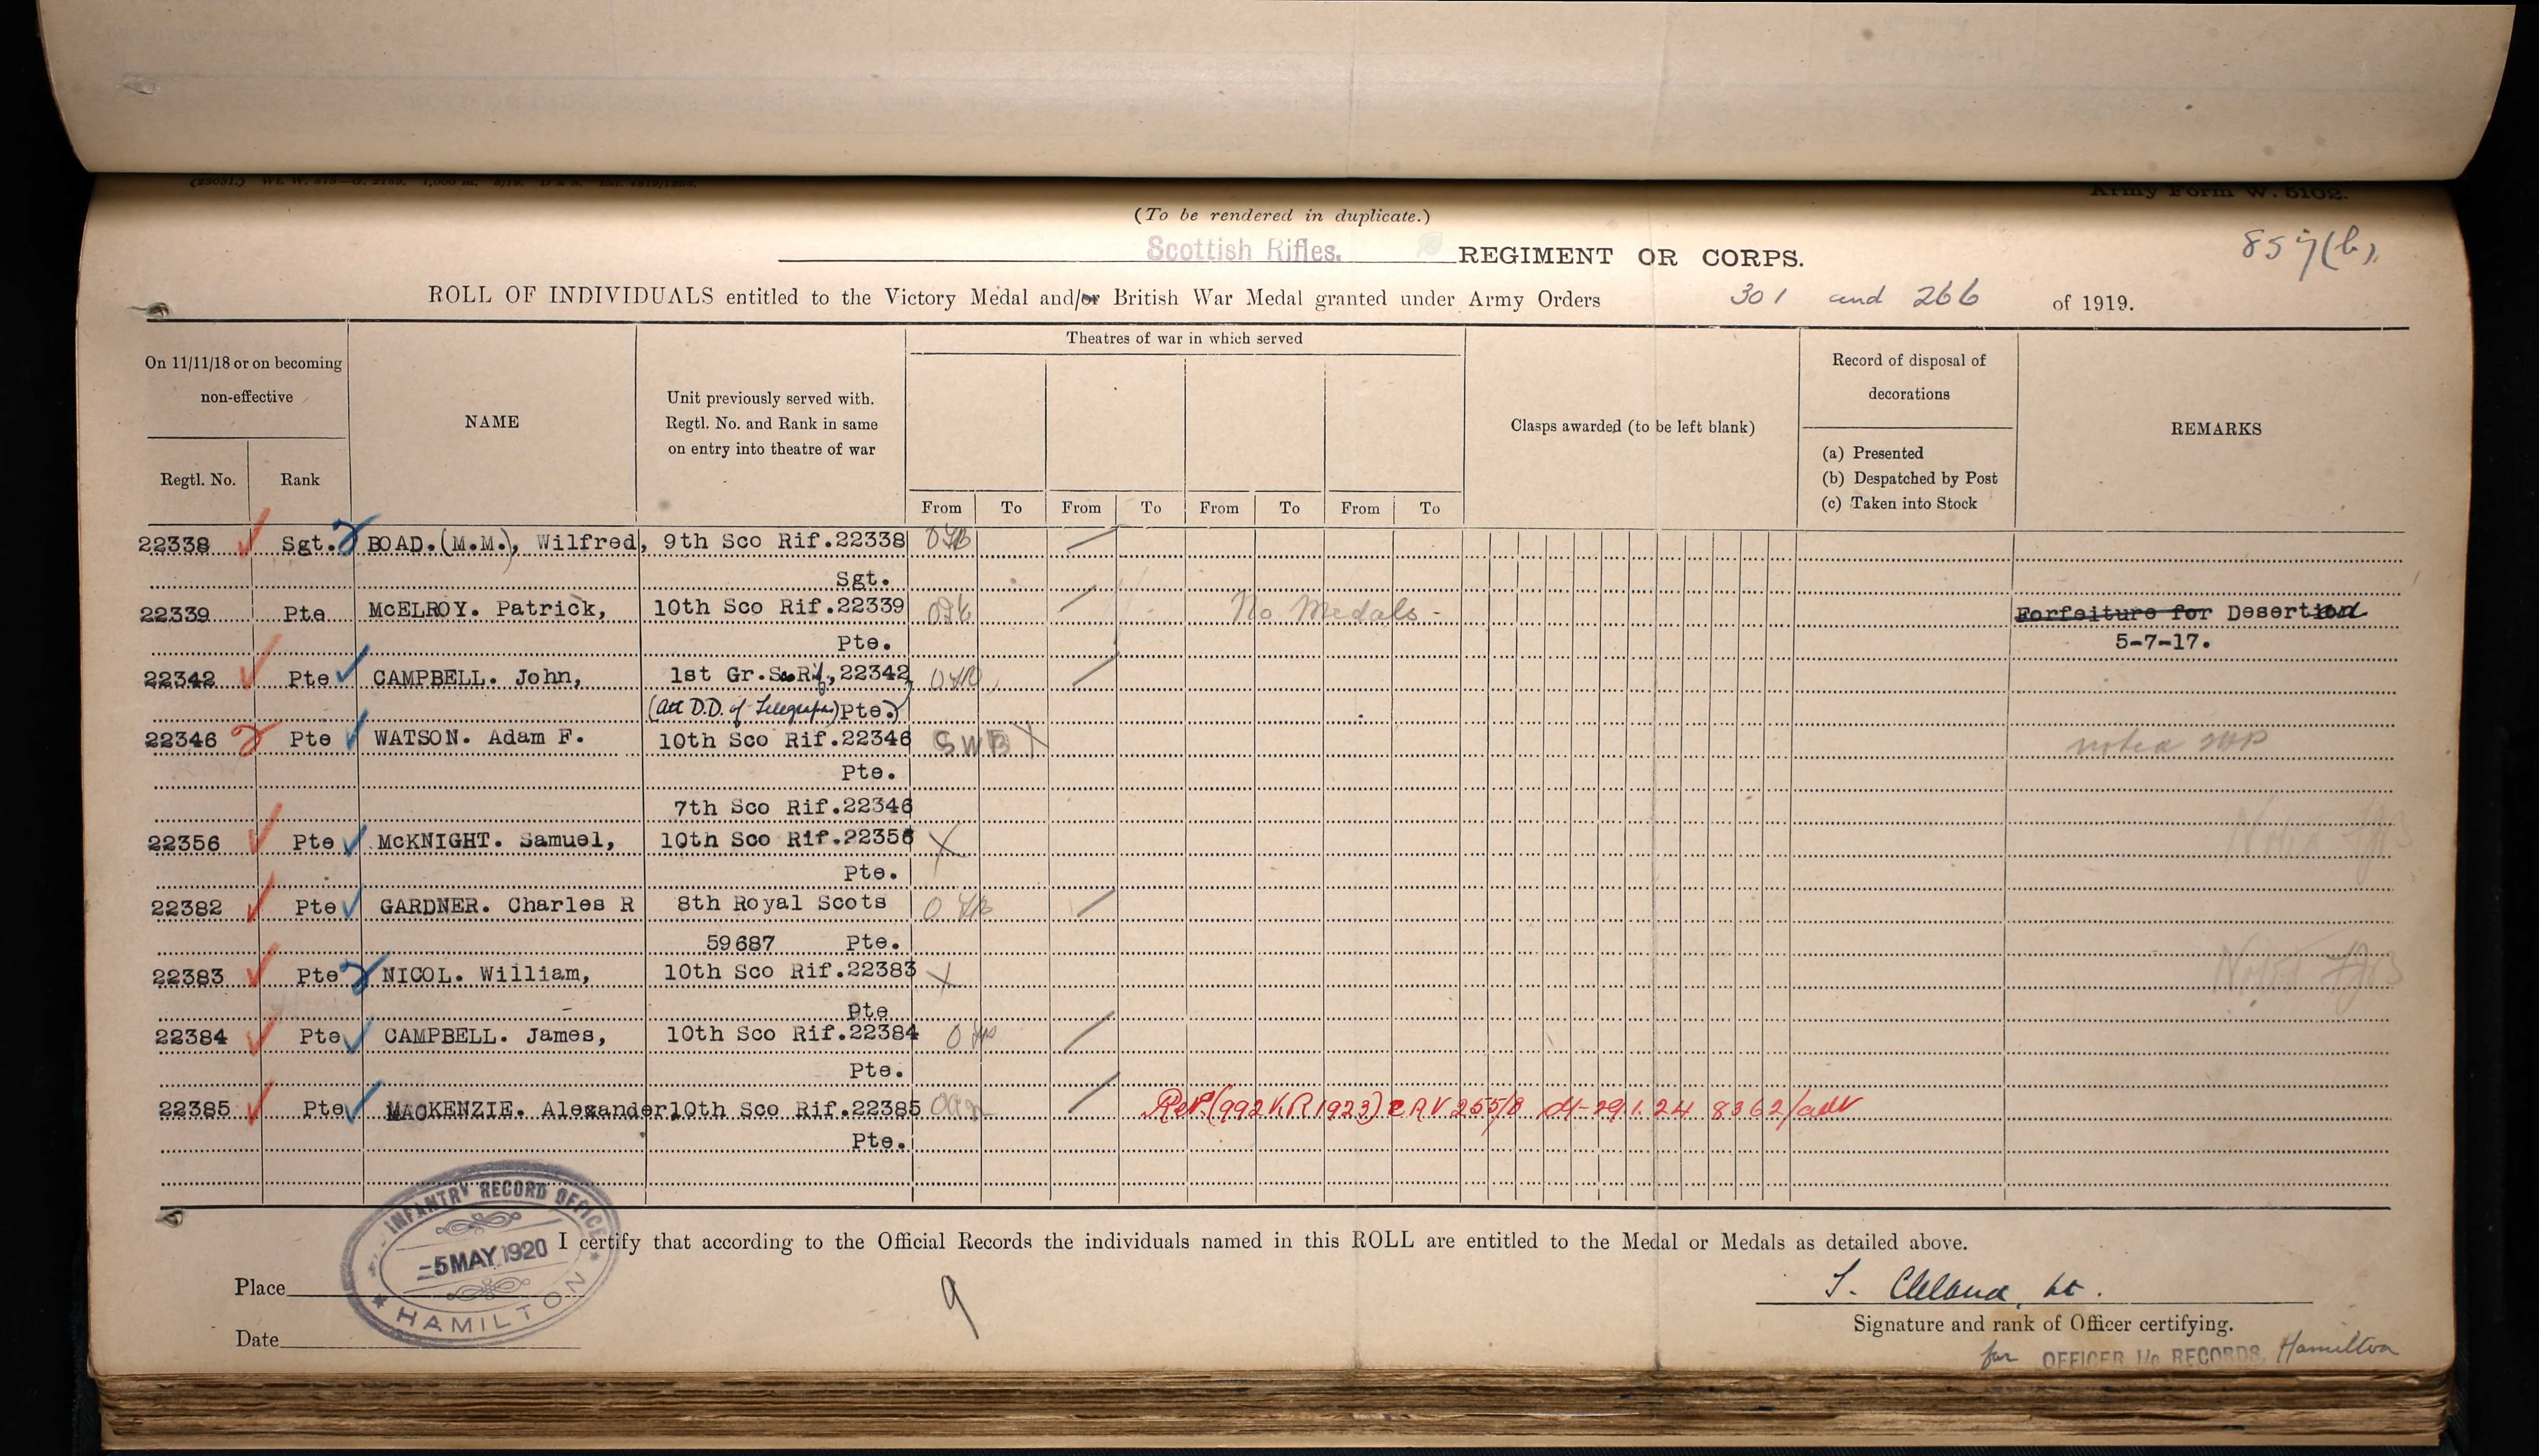 Army Form W. 5102.
(To be rendered in duplicate.)
857(b).
Scottish Rifles. REGIMENT OR CORPS.
ROLL OF INDIVIDUALS entitled to the Victory Medal and/or British War Medal granted under Army Orders 301 and 266 of 1919.
Theatres of war in which served
On 11/11/18 or on becoming
non-effective
Regtl. No. Rank
NAME
Unit previously served with.
Regtl. No. and Rank in same
on entry into theatre of war
From To From To From To From To
Clasps awarded (to be left blank)
Record of disposal of
decorations
(a) Presented
(b) Despatched by Post
(c) Taken into Stock
REMARKS
22338 Sgt. BOAD. (M.M.), Wilfred, 9th Sco Rif.22338
Sgt.
22339 Pte McELROY. Patrick, 10th Sco Rif.22339 No Medals - Forfeiture for Desertion
Pte. 5-7-17.
22342 Pte CAMPBELL. John, 1st Gr.Sco Rif,22342
(att D.D. of Telegraphs) Pte.
22346 Pte WATSON. Adam F. 10th Sco Rif.22346 SWB X noted
Pte.
7th Sco Rif.22346
22356 Pte McKNIGHT. Samuel, 10th Sco Rif.22356 X Noted
Pte.
22382 Pte GARDNER. Charles R 8th Royal Scots
59687 Pte.
22383 Pte NICOL. William, 10th Sco Rif.22383 X Noted
Pte
22384 Pte CAMPBELL. James, 10th Sco Rif.22384
Pte.
22385 Pte MACKENZIE. Alexander, 10th Sco Rif.22385 (992 K.R 1923) 29.1.24 8362/adv
Pte.
INFANTRY RECORD OFFICE
-5 MAY 1920
HAMILTON
I certify that according to the Official Records the individuals named in this ROLL are entitled to the Medal or Medals as detailed above.
Place
Date
9
Cleland, Lt.
Signature and rank of Officer certifying.
for OFFICER i/c RECORDS, Hamilton